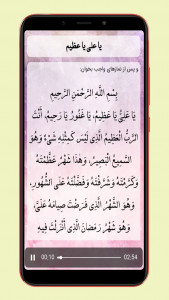 یا علیُّ یا عظیم
و پس از نمازهای واجب بخوان:
بِسْمِ اللَّهِ الرَّحْمَنِ الرَّحِيمِ
يَا عَلِيُّ يَا عَظِيمُ، يَا غَفُورُ يَا رَحِيمُ، أَنْتَ
الرَّبُّ الْعَظِيمُ الَّذِي لَيْسَ كَمِثْلِهِ شَيْءٌ وَهُوَ
السَّمِيعُ الْبَصِيرُ، وَهَذَا شَهْرٌ عَظَّمْتَهُ
وَكَرَّمْتَهُ وَشَرَّفْتَهُ وَفَضَّلْتَهُ عَلَى الشُّهُورِ،
وَهُوَ الشَّهْرُ الَّذِي فَرَضْتَ صِيَامَهُ عَلَيَّ،
وَهُوَ شَهْرُ رَمَضَانَ الَّذِي أَنْزَلْتَ فِيهِ
00:10 02:54